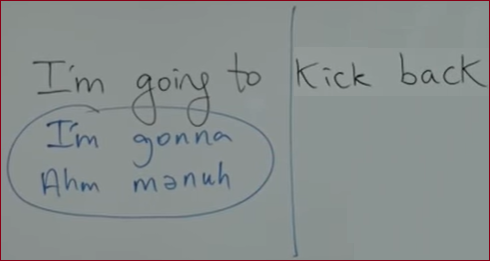 I'm going to Kick back
I'm gonna
Ahm mənuh